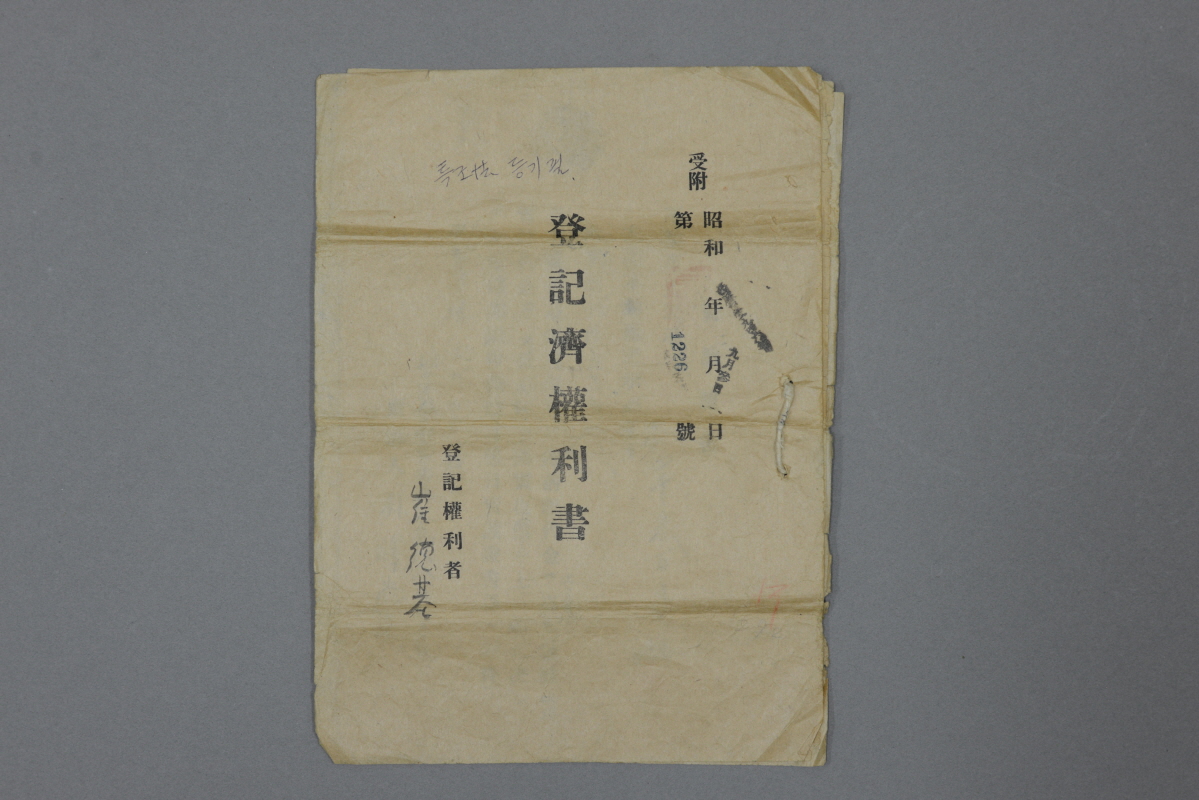 受附
昭和 年 月 日
九月
第 1226 號
登記濟權利書
登記權利者
崔德基
등기필.